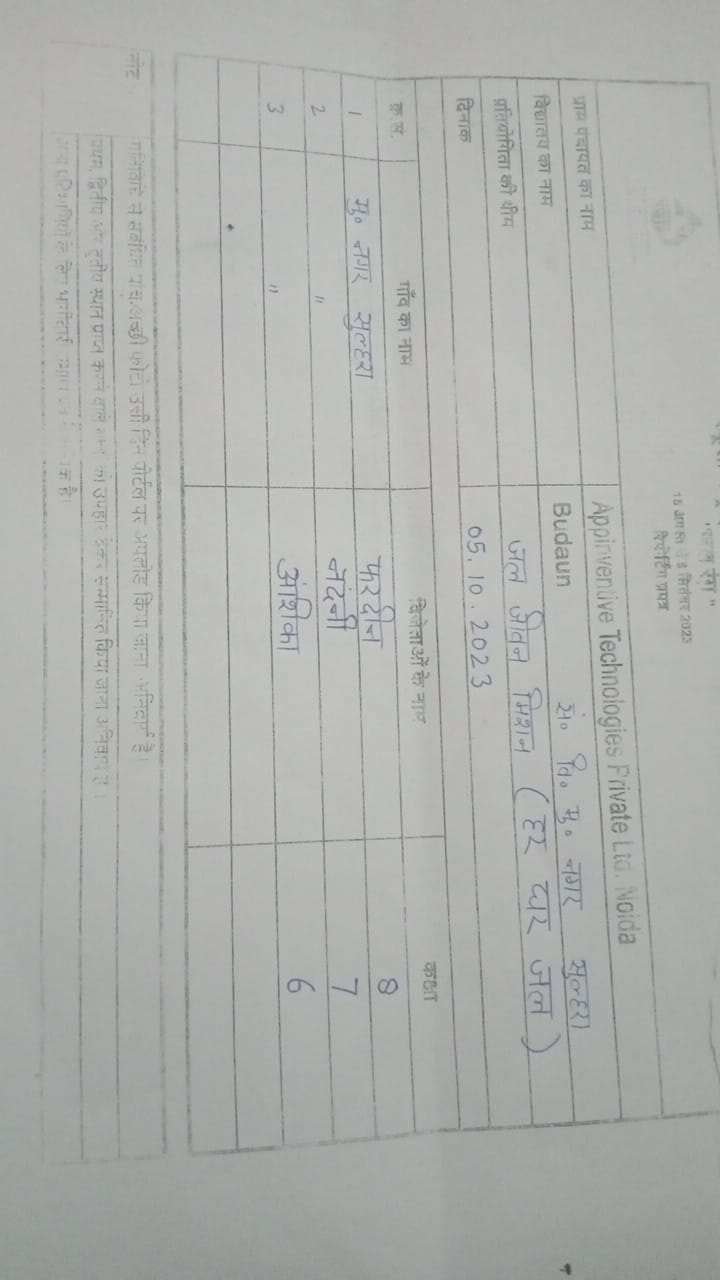 "जल रंग"
15 अगस्त से 8 सितंबर 2023
रिपोर्टिंग प्रपत्र
Appinventive Technologies Private Ltd. Noida
ग्राम पंचायत का नाम Budaun
विद्यालय का नाम सं० वि० मु० नगर सुल्हरा
प्रतियोगिता की थीम जल जीवन मिशन (हर घर जल)
दिनांक 05.10.2023
क्र.सं. गाँव का नाम विजेताओं के नाम कक्षा
1 मु० नगर सुल्हरा फरदीन 8
2 " नंदनी 7
3 " अंशिका 6
नोट
अच्छी फोटो उसी दिन पोर्टल पर अपलोड किया जाना अनिवार्य है।
प्रथम, द्वितीय और तृतीय स्थान प्राप्त करने वाले को उपहार देकर सम्मानित किया जाना अनिवार्य है।
है।